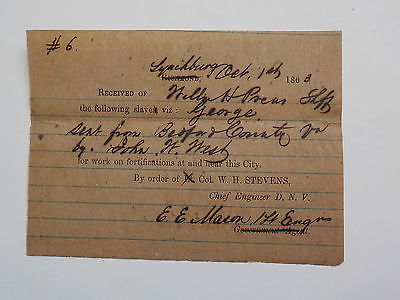 # 6.
Lynchburg Oct. 1st 1863
RICHMOND,
RECEIVED OF Willy H Shff
the following slaves viz: George.
Sent from Bedford County Va
by John W. West
for work on fortifications at and near this City.
By order of Col. W. H. STEVENS,
Chief Engineer D. N. V.
E. E. Mason Engrs
Government Agent.